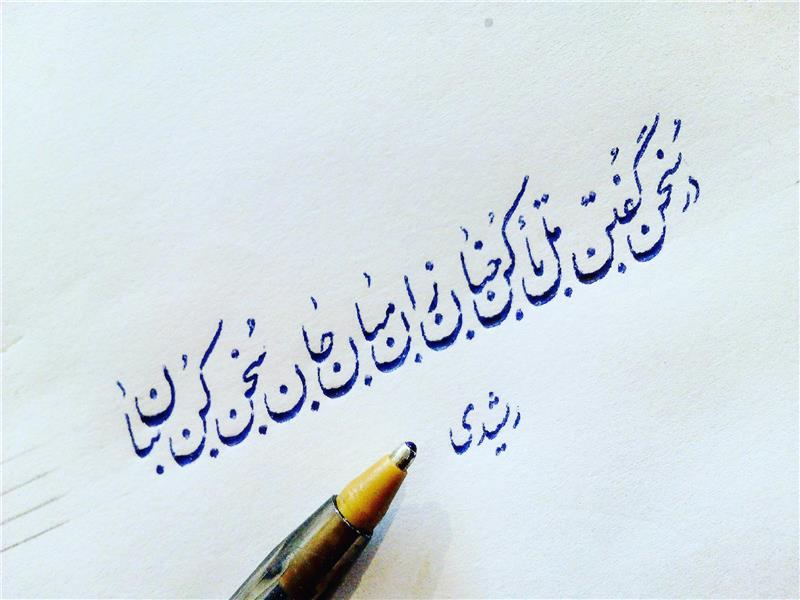 در سُخن گفتن تأمل کُن چنان زان میان جان سُخن کُن بیان
رشیدی